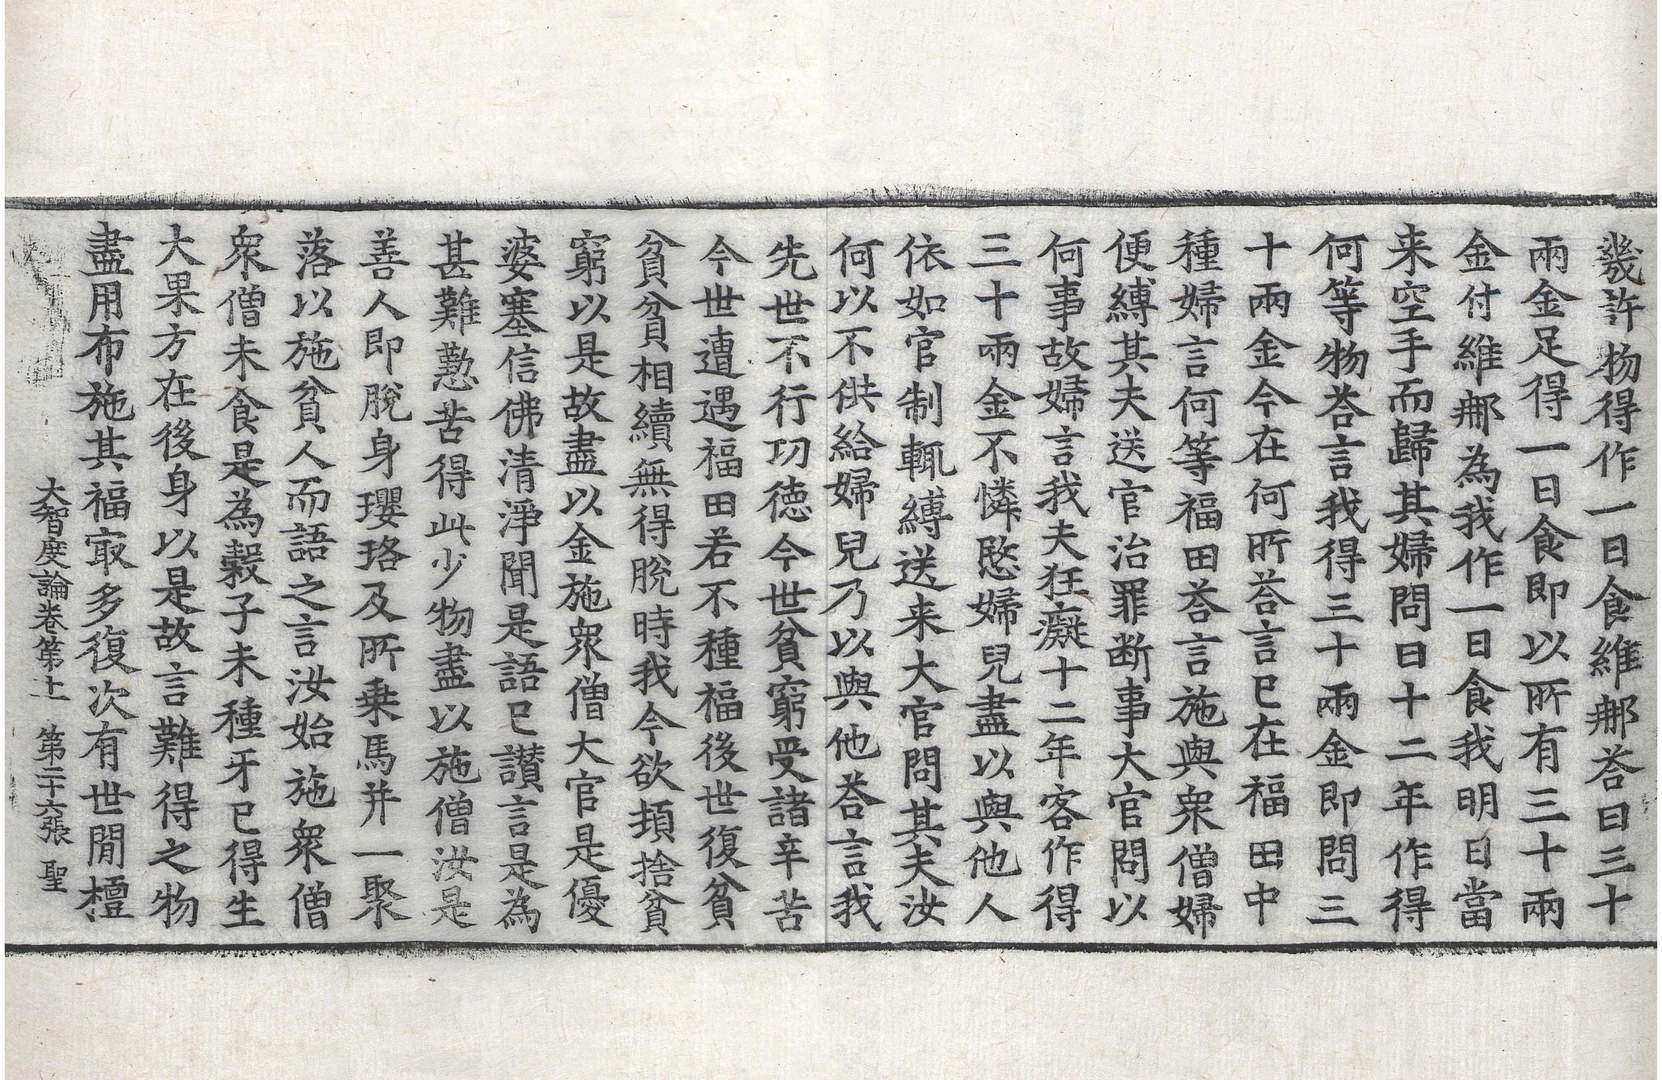 幾許物得作一日食維那荅曰三十
兩金足得一日食即以所有三十兩
金付維那為我作一日食我明日當
来空手而歸其婦問曰十二年作得
何等物荅言我得三十兩金即問三
十兩金今在何所荅言已在福田中
種婦言何等福田荅言施與衆僧婦
便縛其夫送官治罪断事大官問以
何事故婦言我夫狂癡十二年客作得
三十兩金不憐愍婦兒盡以與他人
依如官制輒縛送来大官問其夫汝
何以不供給婦兒乃以與他荅言我
先世不行功德今世貧窮受諸辛苦
今世遭遇福田若不種福後世復貧
貧貧相續無得脫時我今欲頓捨貧
窮以是故盡以金施衆僧大官是優
婆塞信佛清淨聞是語已讃言是為
甚難懃苦得此少物盡以施僧汝是
善人即脫身瓔珞及所乗馬并一聚
落以施貧人而語之言汝始施衆僧
衆僧未食是為穀子未種牙已得生
大果方在後身以是故言難得之物
盡用布施其福㝡多復次有世閒檀
大智度論卷第十一　第二十六張　聖